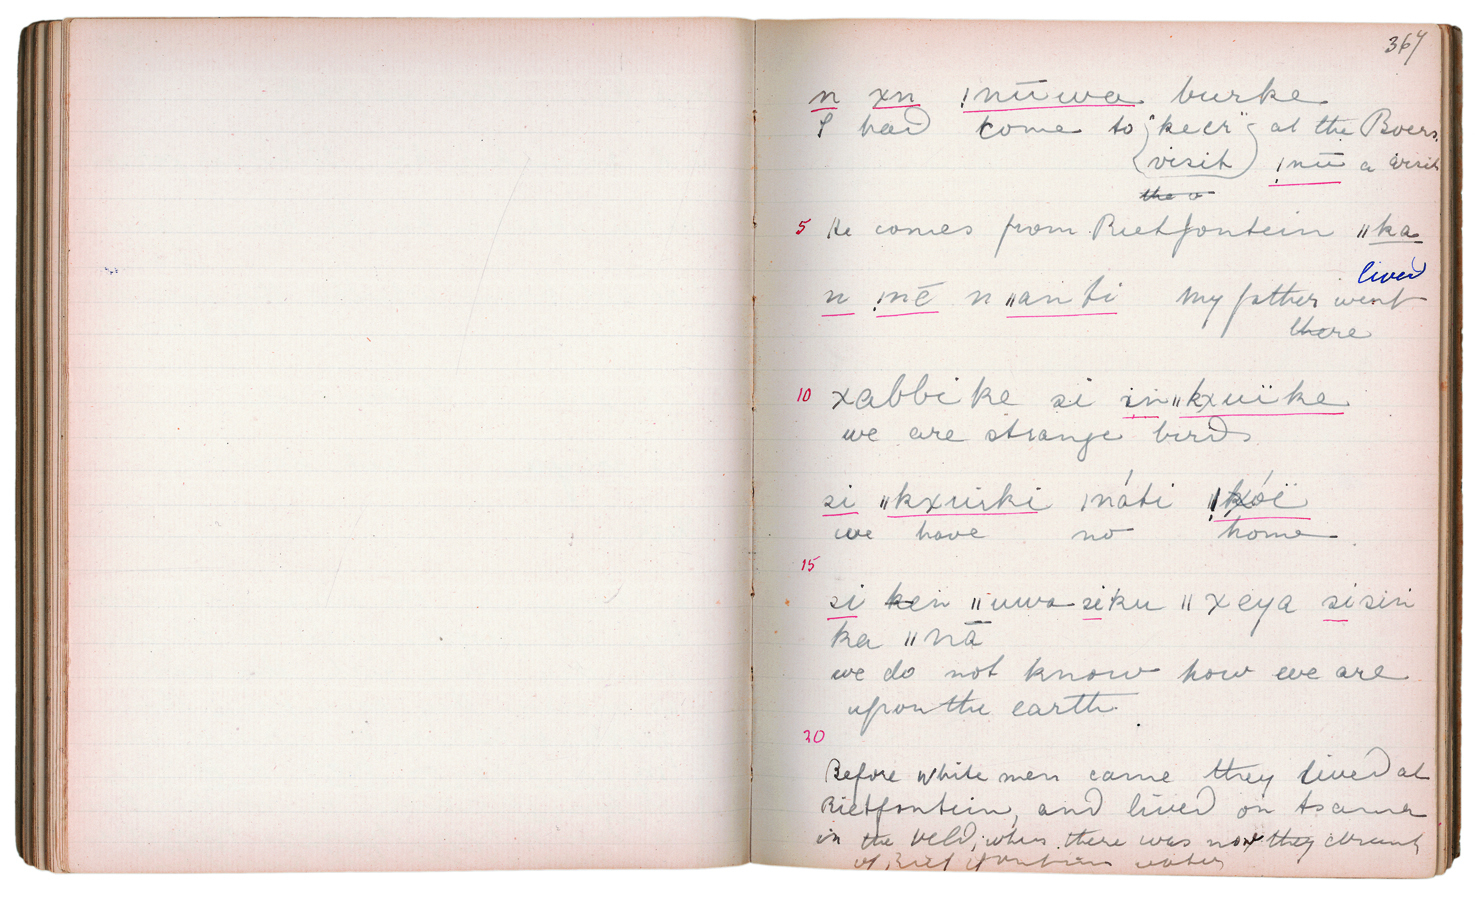 367
n xn !nūwa burke
I had come to "keer" at the Boers.
visit !nū a visit
the v
5 He comes from Rietfontein ǁka
lived
n !nē n ǁanti My father went
there
10 xabbike si sinǁkxuïke
we are strange birds
si ǁkxuiki ǀnáti ǁkxóë
we have no home
15
si ken ǁuwa siku ǁxeya sisin
ka ǁnā
we do not know how we are
upon the earth
20
Before white men came they lived at
Rietfontein, and lived on tsamma
in the veld, when there was none they drank
of Rietfontein water